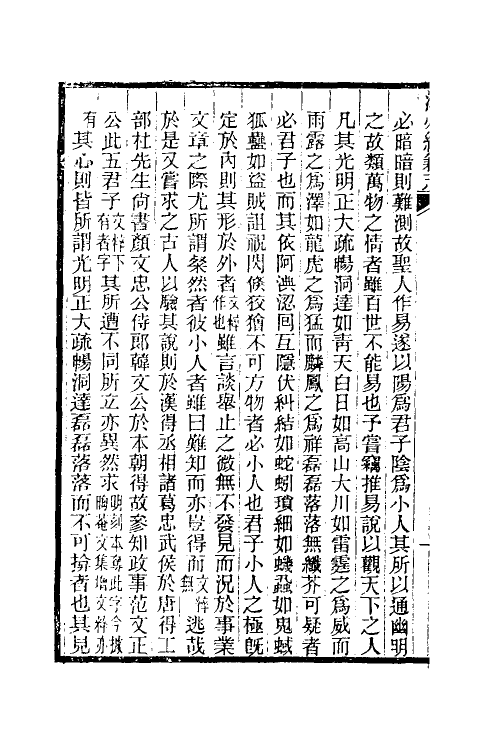 必暗暗則難測故聖人作易遂以陽爲君子陰爲小人其所以通幽明
之故類萬物之情者雖百世不能易也予嘗竊推易說以觀天下之人
凡其光明正大疏暢洞達如靑天白日如高山大川如雷霆之爲威而
雨露之爲澤如龍虎之爲猛而麟鳳之爲祥磊磊落落無纖芥可疑者
必君子也而其依阿淟涊回互隱伏糾結如蛇蚓瑣細如蟣蝨如鬼蜮
狐蠱如盜賊詛祝閃倏狡獪不可方物者必小人也君子小人之極旣
定於內則其形於外者文粹作也雖言談舉止之微無不發見而況於事業
文章之際尤所謂粲然者彼小人者雖曰難知而亦豈得而文粹無逃哉
於是又嘗求之古人以驗其說則於漢得丞相諸葛忠武侯於唐得工
部杜先生尙書顏文忠公侍郎韓文公於本朝得故參知政事范文正
公此五君子文粹下有者字其所遭不同所立亦異然求明刻本奪此字今據晦菴文集增文粹亦
有其心則皆所謂光明正大疏暢洞達磊磊落落而不可揜者也其見